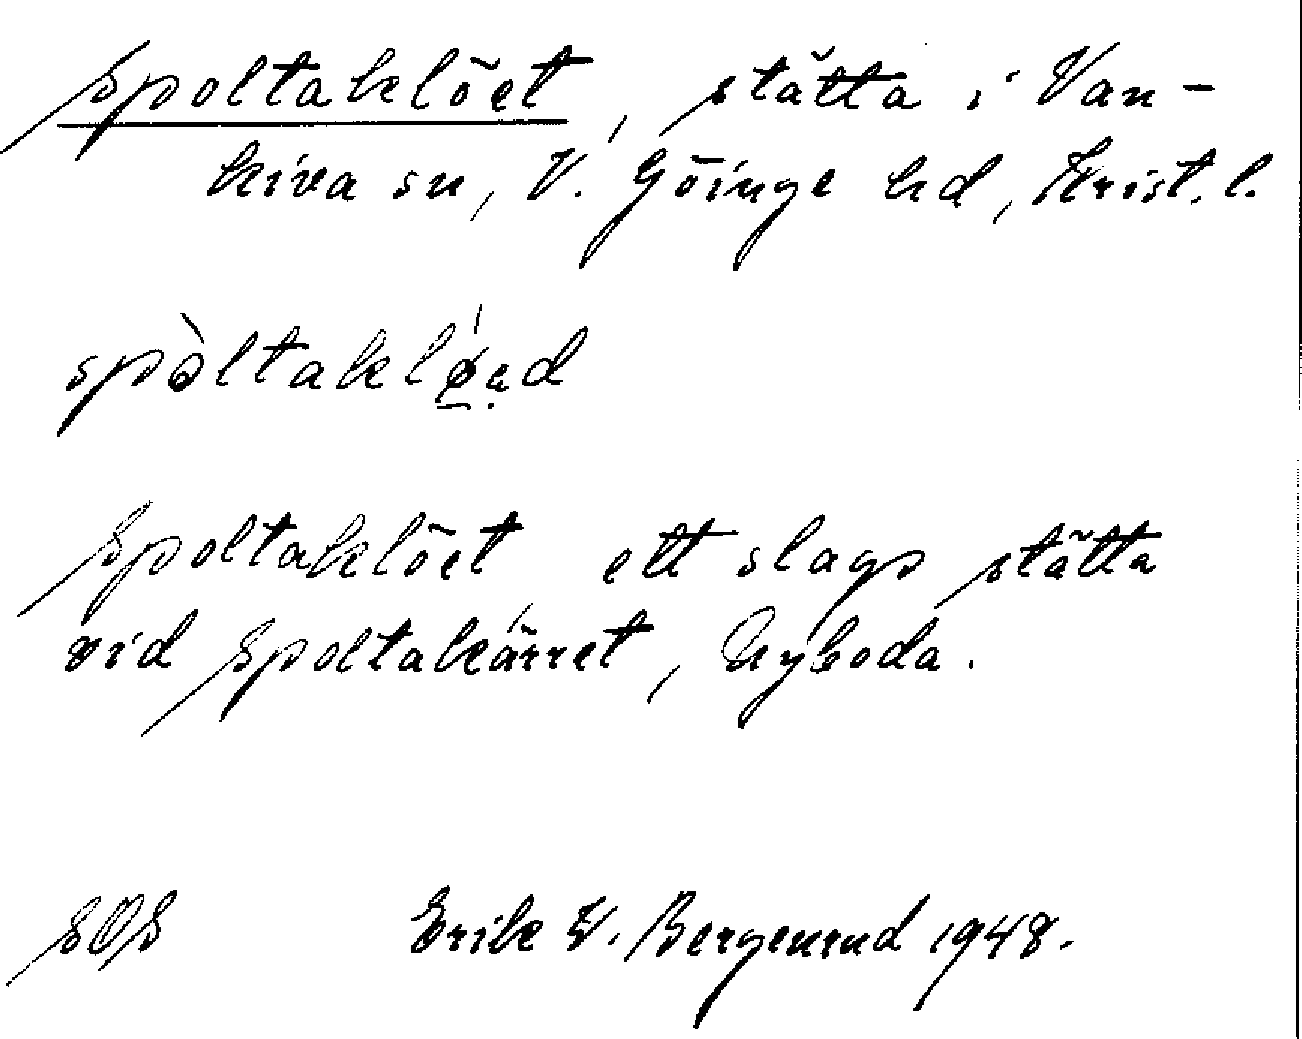 Spoltaklöet, stätta i Van-
kiva sn, V. Göinge hd, Krist. l.
spòltaklǿəd
Spoltaklöet ett slags stätta
vid Spoltakärret, Nyboda.
SOS Erik W. Bergenrud 1948.